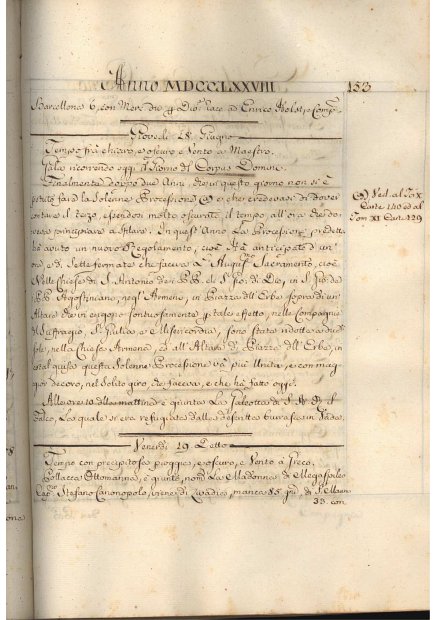 Anno MDCCLXXVIII
153
Barcellona 6, con Merc. diò. racc. ad Enrico
Giovedì 18 Giugno
Tempo frà chiaro, e oscuro e Vento a Maestro.
Gala ricorrendo oggi il Giorno del Corpus Domini.
Finalmente doppo due Anni, che in questo giorno non si è
potuto fare la Solenne Processione e che credevasi di dover
il terzo, essendosi molto oscurato il tempo all'ora che do-
veva principiare a sfilare. In quest'Anno La Processione predetta
hà avuto un nuovo Regolamento, cioè hà anticipato d'un
ora, e di Sette fermate che faceva L'Augus.mo Sacramento, cioè
Nelle Chiese di S. Antonio de PP. di S. Gio: di Dio, in S. Gio: de
PP. Agostiniani, negl'Armeni, in Piazza dell'Erbe sopra di un
Altare che in sontuosamente p tale effetto, nelle Compagnie
del Suffragio, S. Giulia, e e Misericordia, sono state ridotte a due
sole, nella Chiesa Armena, ed all'Altare di Piazza dell'Erbe, in
tal guisa questa Solenne Processione và più Unita, e con mag-
gior decoro, nel solito giro che faceva, e che hà fatto oggi.
Alle ore 10 della mattina è giunta La Galeotta di S. A. R. il
Falco, La quale si era refugiata dalla descritta burrasca in Vada.
Ved. al Tom X
Carte 140 ed al
Tom XI. Carte 129
Venerdì 19 Detto
Tempo con precipitose piogge, e oscuro, e Vento a Greco.
Pollacca Ottomanna, è giunta, nom. La Madonna di Megaspileo
Cap.no Stefano Canonopolo, viene di manca 85 gni. di
33. con